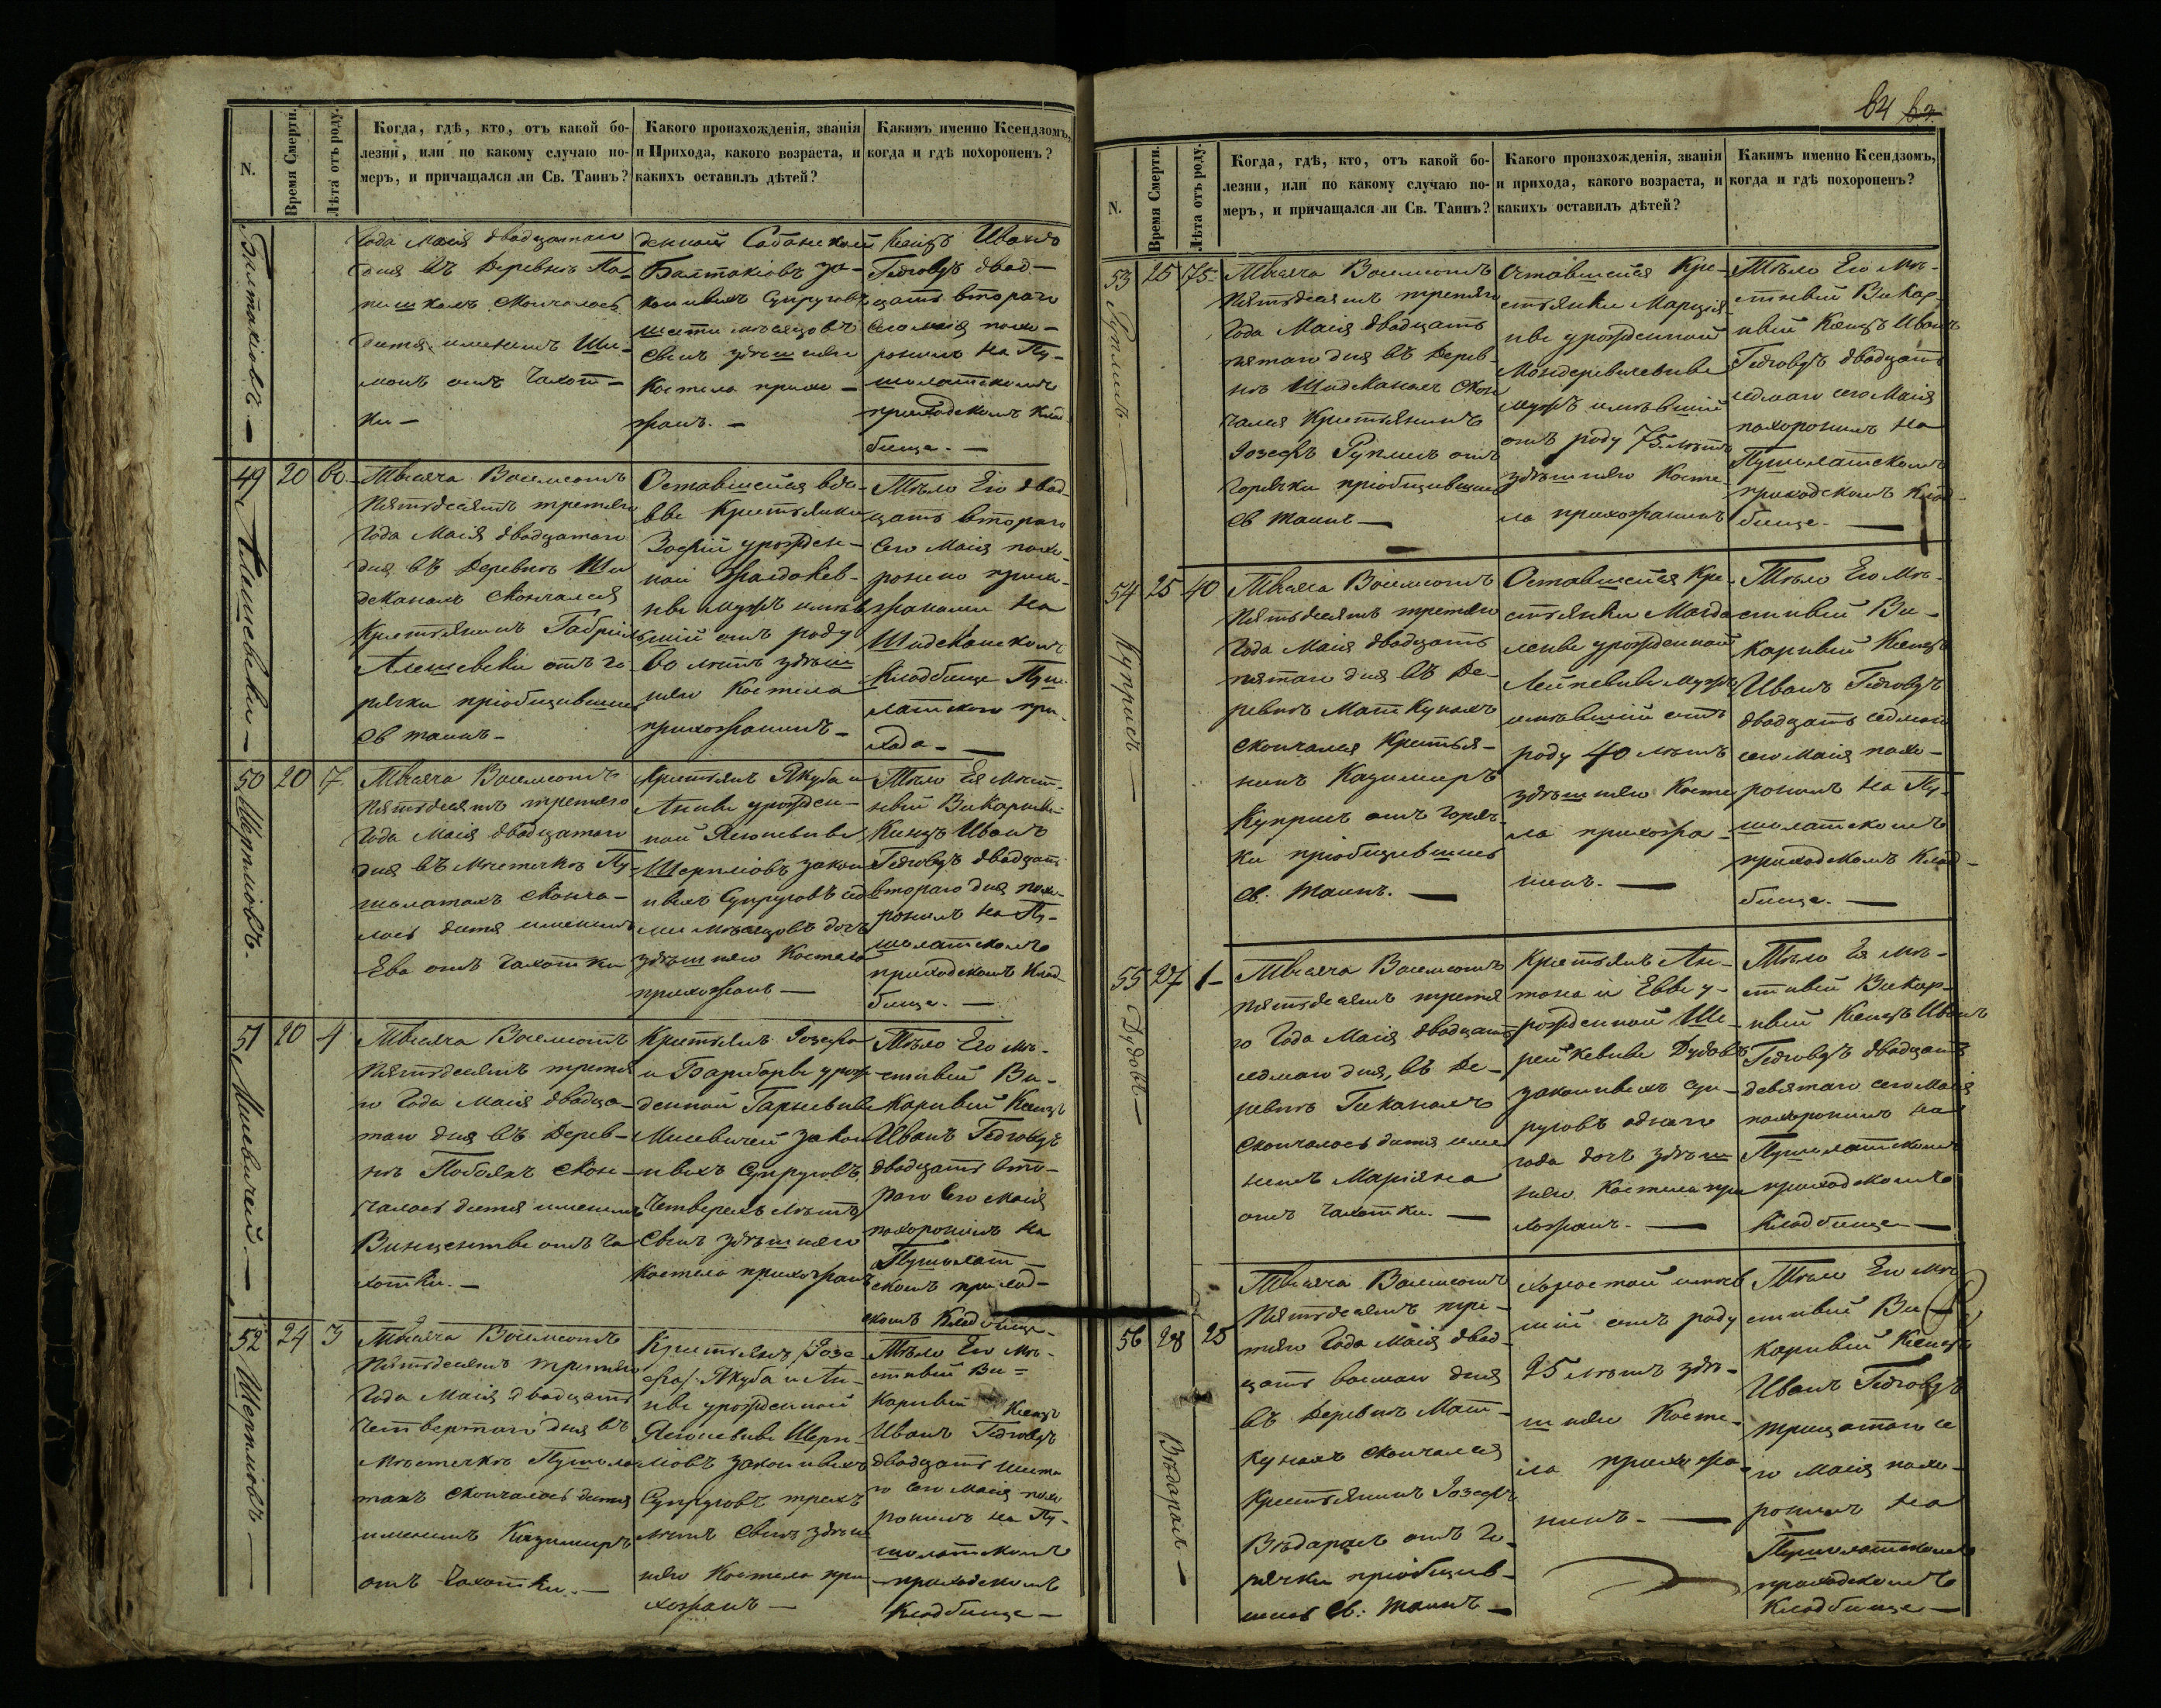 64
N.
Время Смерти.
Лѣта отъ роду.
Когда, гдѣ, кто, отъ какой бо-
лезни, или по какому случаю по-
меръ, и причащался ли Св. Таинъ?
Какого произхожденія, званія
и Прихода, какого возраста, и
какихъ оставилъ дѣтей?
Какимъ именно Ксендзомъ,
когда и гдѣ похороненъ?
Года Маія двадцатаго
дня въ Деревнѣ
скончалось
дитя именемъ
отъ чахот-
ки —
денной
за-
конныхъ Супруговъ
шести мѣсяцовъ
сынъ здѣшняго
Костела прихо-
жанъ. —
Ксендзъ Иванъ
двад-
цать втораго
сего маія похо-
ронилъ на Пу-
шолатскомъ
приходскомъ клад-
бище. —
49
20
60
Тысяча Восемсотъ
Пятьдесятъ третяго
Года Маія двадцатаго
дня въ Деревнѣ Ши-
скончался
Крестьянинъ
отъ го-
рячки пріобщившись
св таинъ —
Оставшейся вдо-
вы Крестьянки
Зофіи урожден-
ной
мужъ имѣв-
шій отъ роду
60 лѣтъ здѣш-
няго Костела
прихожанинъ —
Тѣло Его двад-
цать втораго
Сего Маія похо-
ронено прихо-
жанами на
Кладбище Пуш-
латского при-
хода. —
50
20
7
Тысяча Восемсотъ
Пятьдесятъ третяго
Года Маія двадцатаго
дня въ мѣстечкѣ Пу-
шолатахъ сконча-
лось дитя именемъ
Ева отъ чахотки
Крестьянъ Якуба и
Анны урожден-
ной
закон-
ныхъ Супруговъ сед-
ми мѣсяцовъ дочь
здѣшняго Костела
прихожанъ —
Тѣло Ея мѣст-
ный Викарный
Ксендзъ Иванъ
двадцать
втораго дня похо-
ронилъ на Пу-
шолатскомъ
приходскомъ клад-
бище. —
51
20
4
Тысяча Восемсотъ
Пятьдесятъ третя-
го Года Маія двадца-
таго дня въ Дерев-
нѣ скон-
чалось дитя именемъ
Винценты отъ ча-
хотки. —
Крестьянъ Іозефа
и Барборы урож-
денной
закон-
ныхъ Супруговъ
четверехъ лѣтъ
Сынъ здѣшняго
Костела прихожанъ
Тѣло Его мѣ-
стный Ви-
карный Ксендзъ
Иванъ
двадцать вто-
раго Сего Маія
похоронилъ на
Пушолат-
скомъ приход-
скомъ Кладбище —
52
24
3
Тысяча Восемсотъ
Пятьдесятъ третяго
Года Маія двадцать
четвертаго дня въ
Мѣстечкѣ Пушола-
тахъ скончалось дитя
именемъ Казимиръ
отъ чахотки. —
Крестьянъ /Іозе-
фа/ Якуба и Ан-
ны урожденной
законныхъ
Супруговъ трехъ
лѣтъ сынъ здѣш-
няго Костела при-
хожанъ —
Тѣло Его мѣ-
стный Ви-
карный Ксендзъ
Иванъ
двадцать шеста-
го сего Маія похо-
ронилъ на Пу-
шолатскомъ
приходскомъ
Кладбище —
N.
Время Смерти.
Лѣта отъ роду.
Когда, гдѣ, кто, отъ какой бо-
лезни, или по какому случаю по-
меръ, и причащался ли Св. Таинъ?
Какого произхожденія, званія
и прихода, какого возраста, и
какихъ оставилъ дѣтей?
Какимъ именно Ксендзомъ,
когда и гдѣ похороненъ?
53
25
75
Тысяча Восемсотъ
Пятьдесятъ третяго
Года Маія двадцать
пятаго дня въ Дерев-
нѣ скон-
чался Крестьянинъ
Іозефъ отъ
горячки пріобщившись
св таинъ —
Оставшейся Кре-
стьянки
урожденной
мужъ имѣвшій
отъ роду 75 лѣтъ
здѣшняго Косте-
ла прихожанинъ
Тѣло Его мѣ-
стный Викар-
ный Ксендзъ Иванъ
двадцать
седмаго сего Маія
похоронилъ на
Пушолатскомъ
приходскомъ Клад-
бище. —
54
25
40
Куприсъ —
Тысяча Восемсотъ
Пятьдесятъ третяго
Года Маія двадцать
пятаго дня въ Де-
ревнѣ Маткунахъ
скончался Крестья-
нинъ Казимиръ
Куприсъ отъ горяч-
ки пріобщившись
св. таинъ. —
Оставшейся Кре-
стьянки Магда-
лены урожденной
мужъ
имѣвшій отъ
роду 40 лѣтъ
здѣшняго Косте-
ла прихожа-
нинъ. —
Тѣло Его мѣ-
стный Ви-
карный Ксендзъ
Иванъ
двадцать седмаго
сего маія похо-
ронилъ на Пу-
шолатскомъ
приходскомъ Клад-
бище. —
55
27
1
Дудовъ —
Тысяча Восемсотъ
Пятьдесятъ третя-
го Года Маія двадцать
седмаго дня, въ Де-
ревнѣ
скончалось дитя име-
немъ Маріяна
отъ чахотки. —
Крестьянъ Ан-
тона и Евы у-
рожденной
Дудовъ
законныхъ Суп-
руговъ однаго
года дочь здѣш-
няго Костела при-
хожанъ. —
Тѣло Ея мѣ-
стный Викар-
ный Ксендзъ Иванъ
двадцать
девятаго сего Маія
похоронилъ на
Пушолатскомъ
приходскомъ
Кладбище —
56
28
25
Тысяча Восемсотъ
Пятьдесятъ тре-
тяго Года Маія двад-
цать восмаго дня
въ Деревнѣ Мат-
кунахъ скончался
Крестьянинъ Іозефъ
отъ го-
рячки пріобщив-
шись св: таинъ —
Холостой имѣв-
шій отъ роду
25 лѣтъ здѣ-
шняго Косте-
ла прихожа-
нинъ. —
Тѣло Его мѣ-
стный Ви-
карный Ксендзъ
Иванъ
тридцатаго се-
го Маія похо-
ронилъ на
Пушолатскомъ
приходскомъ
Кладбище —